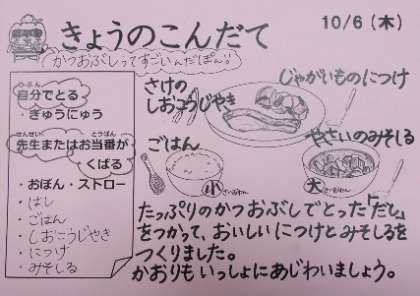 きょうのこんだて
10/6(木)
かつおぶしってすごいんだぽん!!
じぶん
自分でとる
・ぎゅうにゅう
せんせい とうばん
先生またはお当番が
くばる
・おぼん・ストロー
・はし
・ごはん
・しおこうじやき
・につけ
・みそしる
さけの
しおこうじやき
じゃがいものにつけ
ごはん
小
やさいのみそしる
大
たっぷりのかつおぶしでとった「だし」
をつかって、おいしいにつけとみそしるを
つくりました。
かおりもいっしょにあじわいましょう。